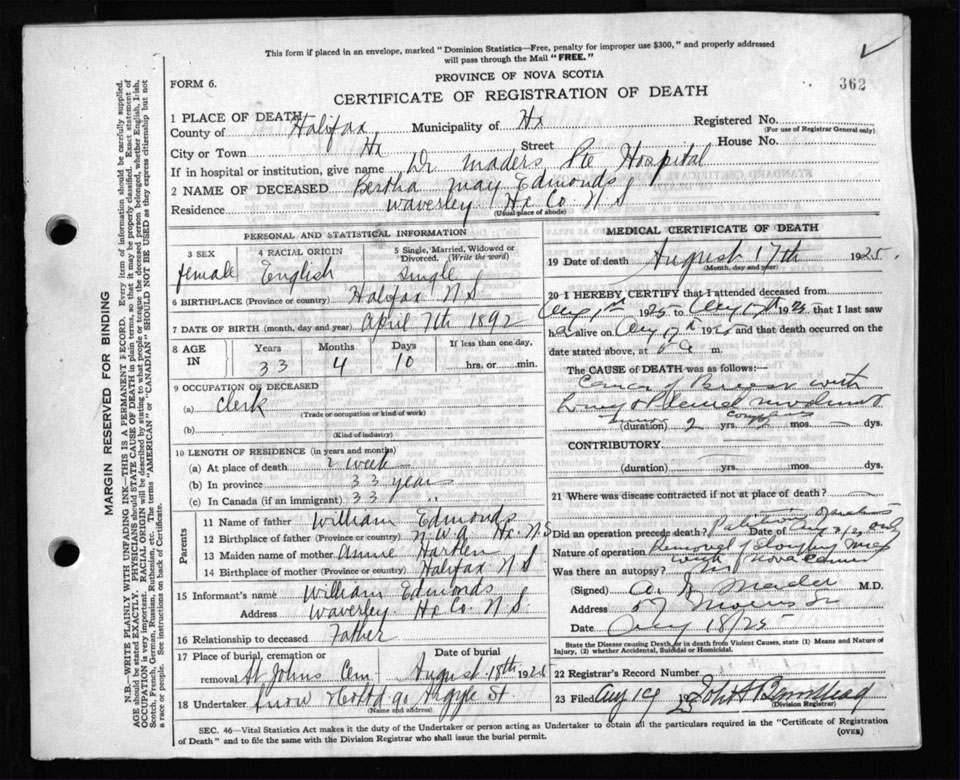 This form if placed in an envelope, marked "Dominion Statistics—Free, penalty for improper use $300," and properly addressed
will pass through the Mail "FREE."
PROVINCE OF NOVA SCOTIA
FORM 6.
362
CERTIFICATE OF REGISTRATION OF DEATH
1 PLACE OF DEATH
County of Halifax Municipality of Hx Registered No.
(For use of Registrar General only)
City or Town Hx Street House No.
If in hospital or institution, give name Dr Maders Pte Hospital
2 NAME OF DECEASED Bertha May Edmonds
Residence Waverley Hx Co N S
(Usual place of abode)
PERSONAL AND STATISTICAL INFORMATION
3 SEX 4 RACIAL ORIGIN 5 Single, Married, Widowed or Divorced. (Write the word)
female English Single
6 BIRTHPLACE (Province or country) Halifax N S
7 DATE OF BIRTH (month, day and year) April 7th 1892
8 AGE IN Years Months Days If less than one day,
33 4 10 hrs. or min.
9 OCCUPATION OF DECEASED
(a) Clerk
(Trade or occupation or kind of work)
(b)
(Kind of industry)
10 LENGTH OF RESIDENCE (in years and months)
(a) At place of death 2 week
(b) In province 33 years
(c) In Canada (if an immigrant) 33 "
Parents
11 Name of father William Edmonds
12 Birthplace of father (Province or country) Hx N S
13 Maiden name of mother Annie Hartlen
14 Birthplace of mother (Province or country) Halifax N S
15 Informant's name William Edmonds
Address Waverley Hx Co. N S.
16 Relationship to deceased Father
17 Place of burial, cremation or Date of burial
removal St Johns Cem August 18th 1925
18 Undertaker Snow & Co Ltd 90 Argyle St.
(Name and address)
MEDICAL CERTIFICATE OF DEATH
19 Date of death August 17th 1925.
(Month, day and year)
20 I HEREBY CERTIFY that I attended deceased from
Aug 1st 1925 to Aug 1925 that I last saw
h alive on Aug 17th 1925 and that death occurred on the
date stated above, at a m.
The CAUSE of DEATH was as follows:
Cancer of Breast with
Lung & Pleural involvement
(duration) 2 yrs. mos. dys.
CONTRIBUTORY.
(duration) yrs. mos. dys.
21 Where was disease contracted if not at place of death?
Did an operation precede death? Palliative Date of Aug
Nature of operation Removal of
Was there an autopsy?
(Signed) A. Mader M.D.
Address 57 Morris St
Date Aug 18/25
State the Disease causing Death, or in death from Violent Causes, state (1) Means and Nature of
Injury, (2) whether Accidental, Suicidal or Homicidal.
22 Registrar's Record Number
23 Filed Aug 19 192
(Division Registrar)
SEC. 46—Vital Statistics Act makes it the duty of the Undertaker or person acting as Undertaker to obtain all the particulars required in the "Certificate of Registration
of Death" and to file the same with the Division Registrar who shall issue the burial permit.
(OVER)
MARGIN RESERVED FOR BINDING
N.B.—WRITE PLAINLY WITH UNFADING INK—THIS IS A PERMANENT RECORD. Every item of information should be carefully supplied.
AGE should be stated EXACTLY. PHYSICIANS should STATE CAUSE OF DEATH in plain terms, so that it may be properly classified. Exact statement of
OCCUPATION is very important. RACIAL ORIGIN will be described by stating to what people or tongue the deceased person belonged, whether English, Irish,
Scotch, French, German, Russian, Ruthenian, etc. The terms "AMERICAN" or "CANADIAN" SHOULD NOT BE USED as they express citizenship but not
a race or people. See instructions on back of Certificate.